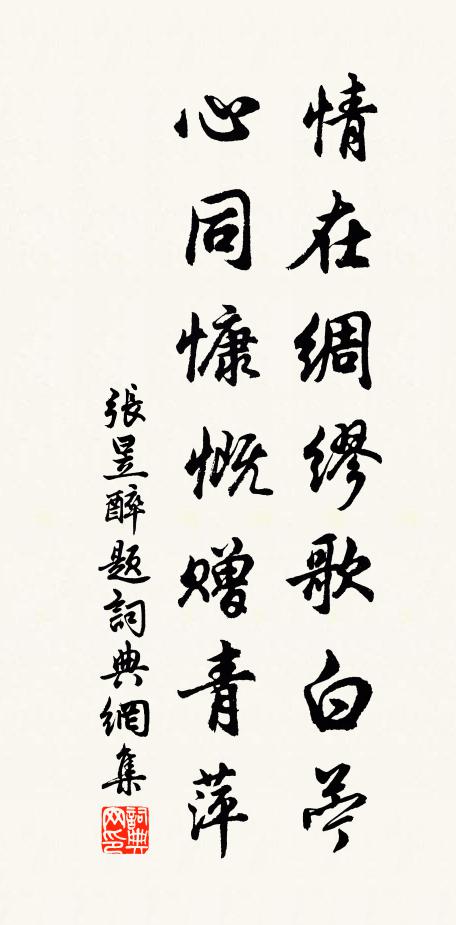 情在綢繆歌白苧
心同慷慨贈青萍
張昱醉題詞典網集
詞典
网印